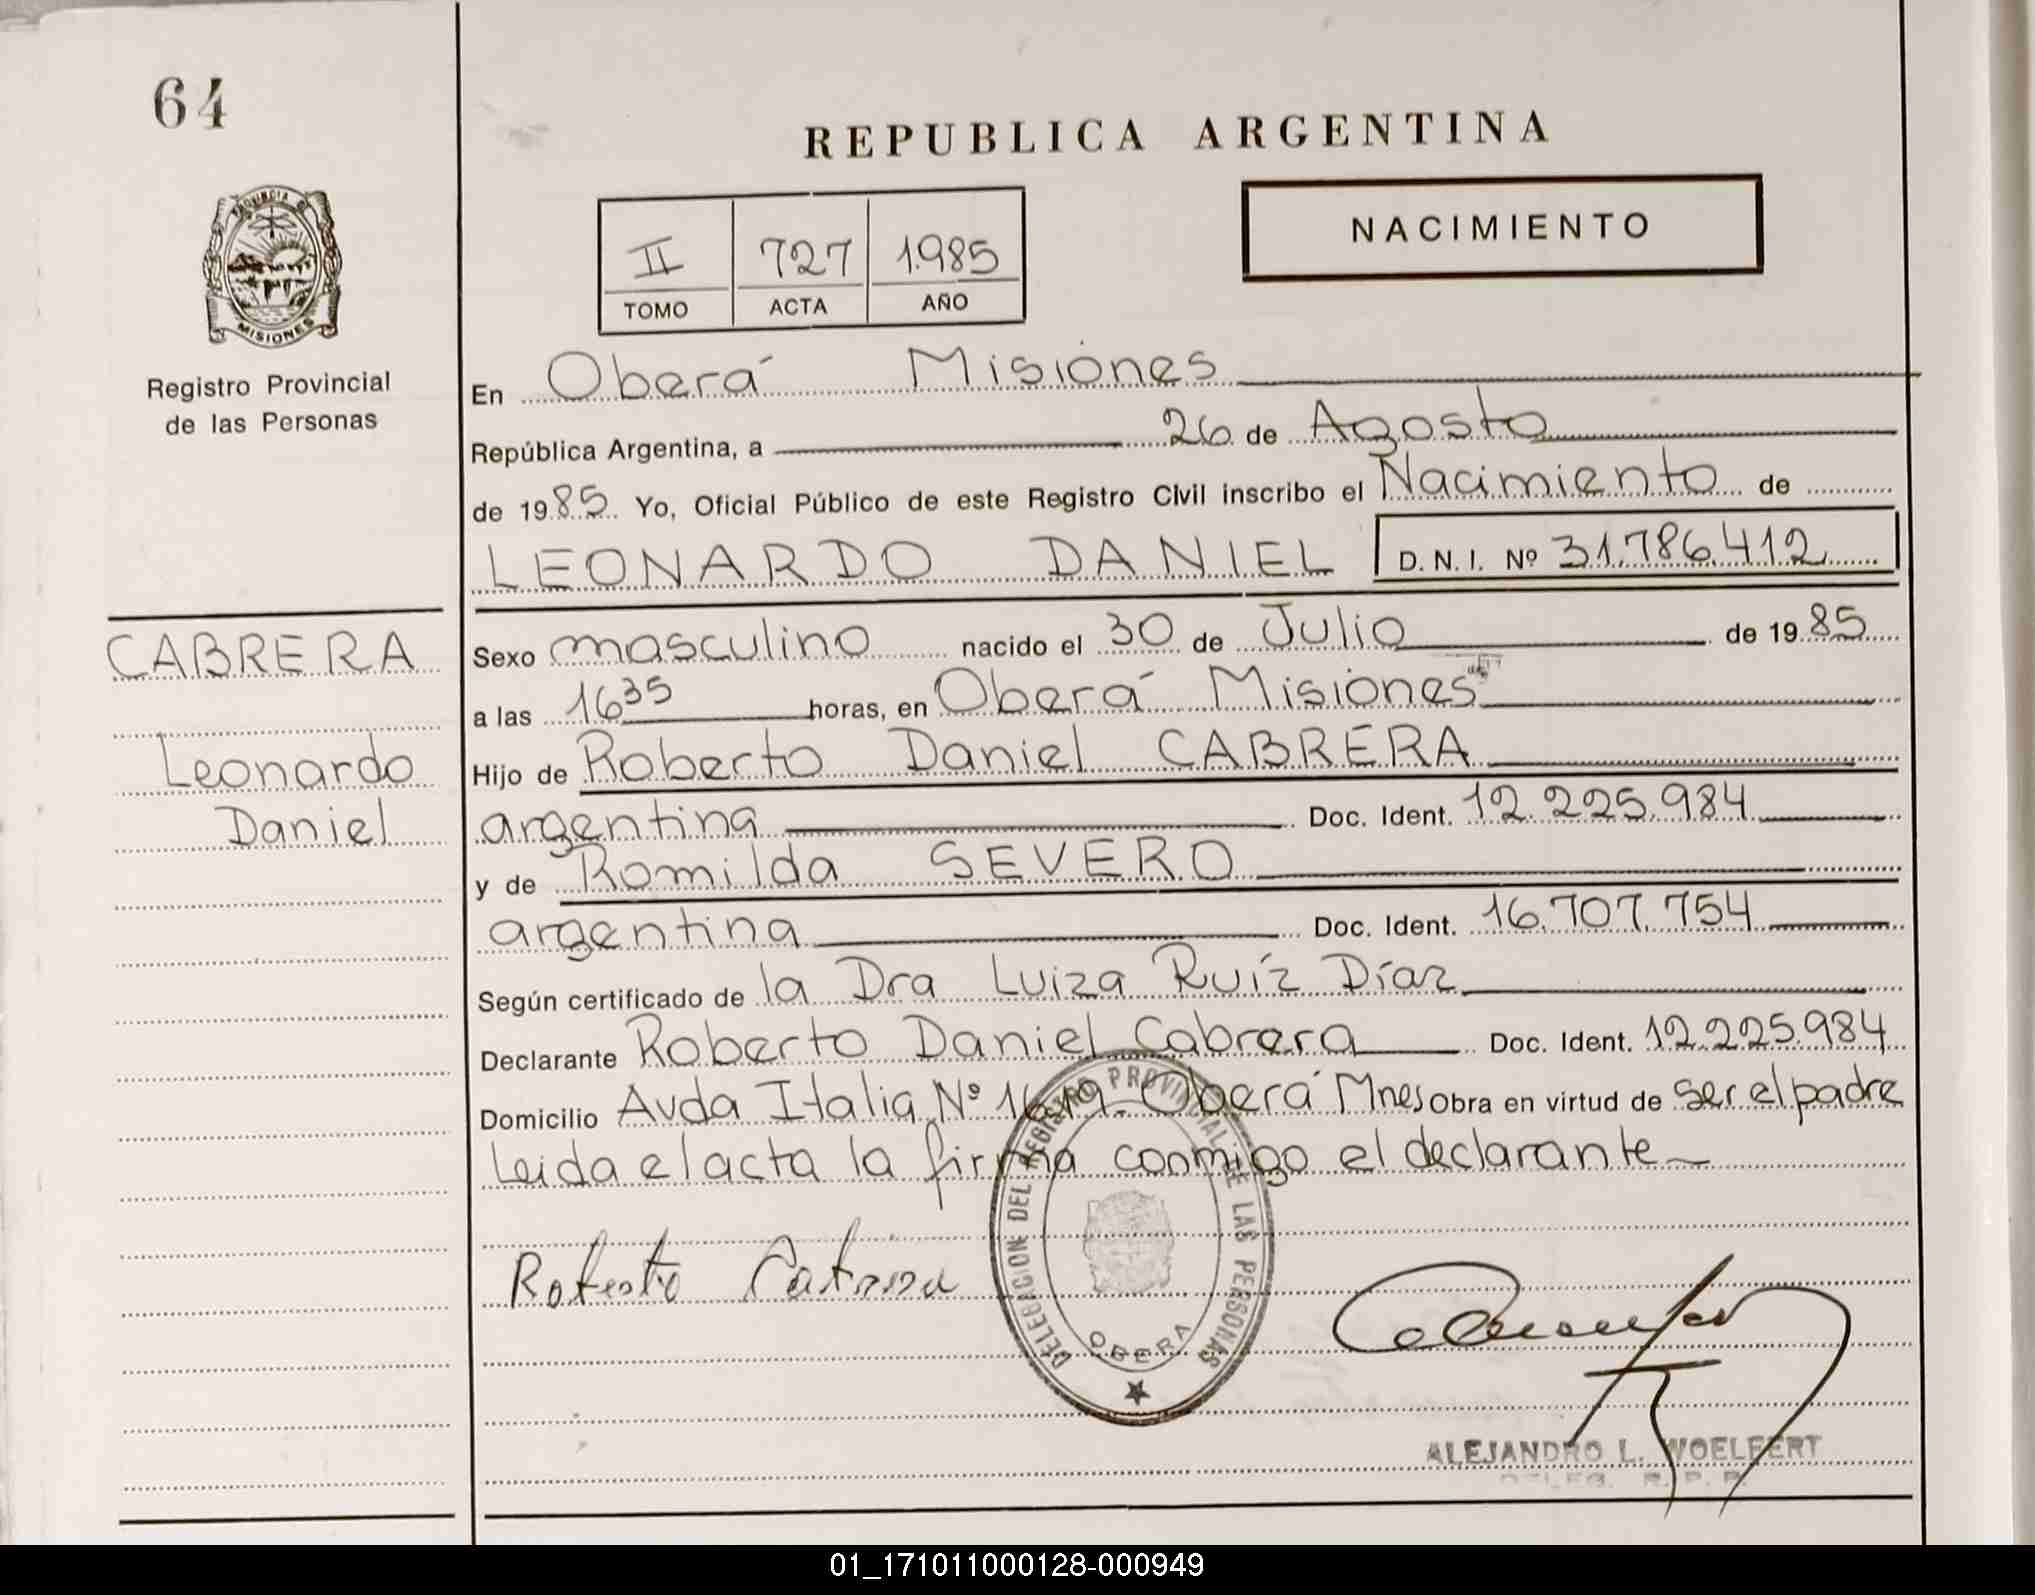 64
REPUBLICA ARGENTINA
PROVINCIA DE
MISIONES
Registro Provincial
de las Personas
II 727 1.985
TOMO ACTA AÑO
NACIMIENTO
En Oberá Misiones
República Argentina, a 26 de Agosto
de 1985. Yo, Oficial Público de este Registro Civil inscribo el Nacimiento de
LEONARDO DANIEL D.N.I. Nº 31.786.412
CABRERA
Leonardo
Daniel
Sexo masculino nacido el 30 de Julio de 1985
a las 16 35 horas, en Oberá Misiones
Hijo de Roberto Daniel CABRERA
argentina Doc. Ident. 12.225.984
y de Romilda SEVERO
argentina Doc. Ident. 16.707.754
Según certificado de la Dra Luiza Ruíz Díaz
Declarante Roberto Daniel Cabrera Doc. Ident. 12.225.984
Domicilio Avda Italia Nº 1619 - Oberá Mnes Obra en virtud de ser el padre
Leida el acta la firma conmigo el declarante
DELEGACION DEL REGISTRO PROVINCIAL DE LAS PERSONAS
OBERA
Roberto Cabrera
ALEJANDRO L. WOELFERT
DELEG. R. P. P.
01_171011000128-000949